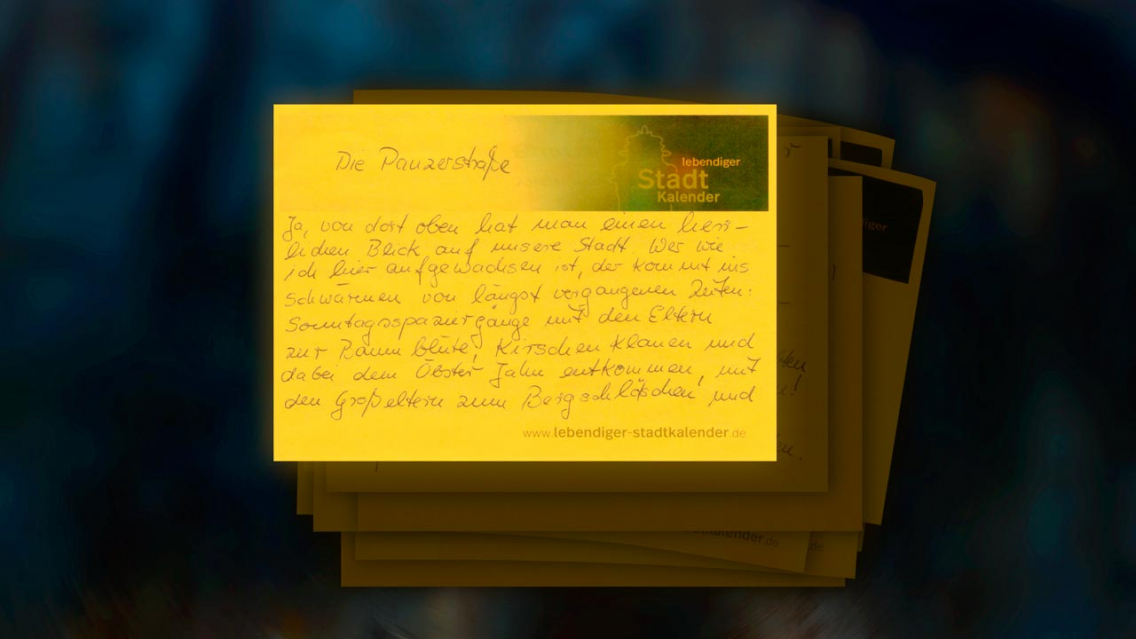 Die Panzerstraße
lebendiger
Stadt
Kalender
Ja, von dort oben hat man einen herr-
lichen Blick auf unsere Stadt. Wer wie
ich hier aufgewachsen ist, der kommt ins
schwärmen von längst vergangenen Zeiten:
Sonntagsspaziergänge mit den Eltern
zur Baumblüte, Kirschen klauen und
dabei dem Obster Jahn entkommen, mit
den Großeltern zum Bergschlößchen und
www.lebendiger-stadtkalender.de